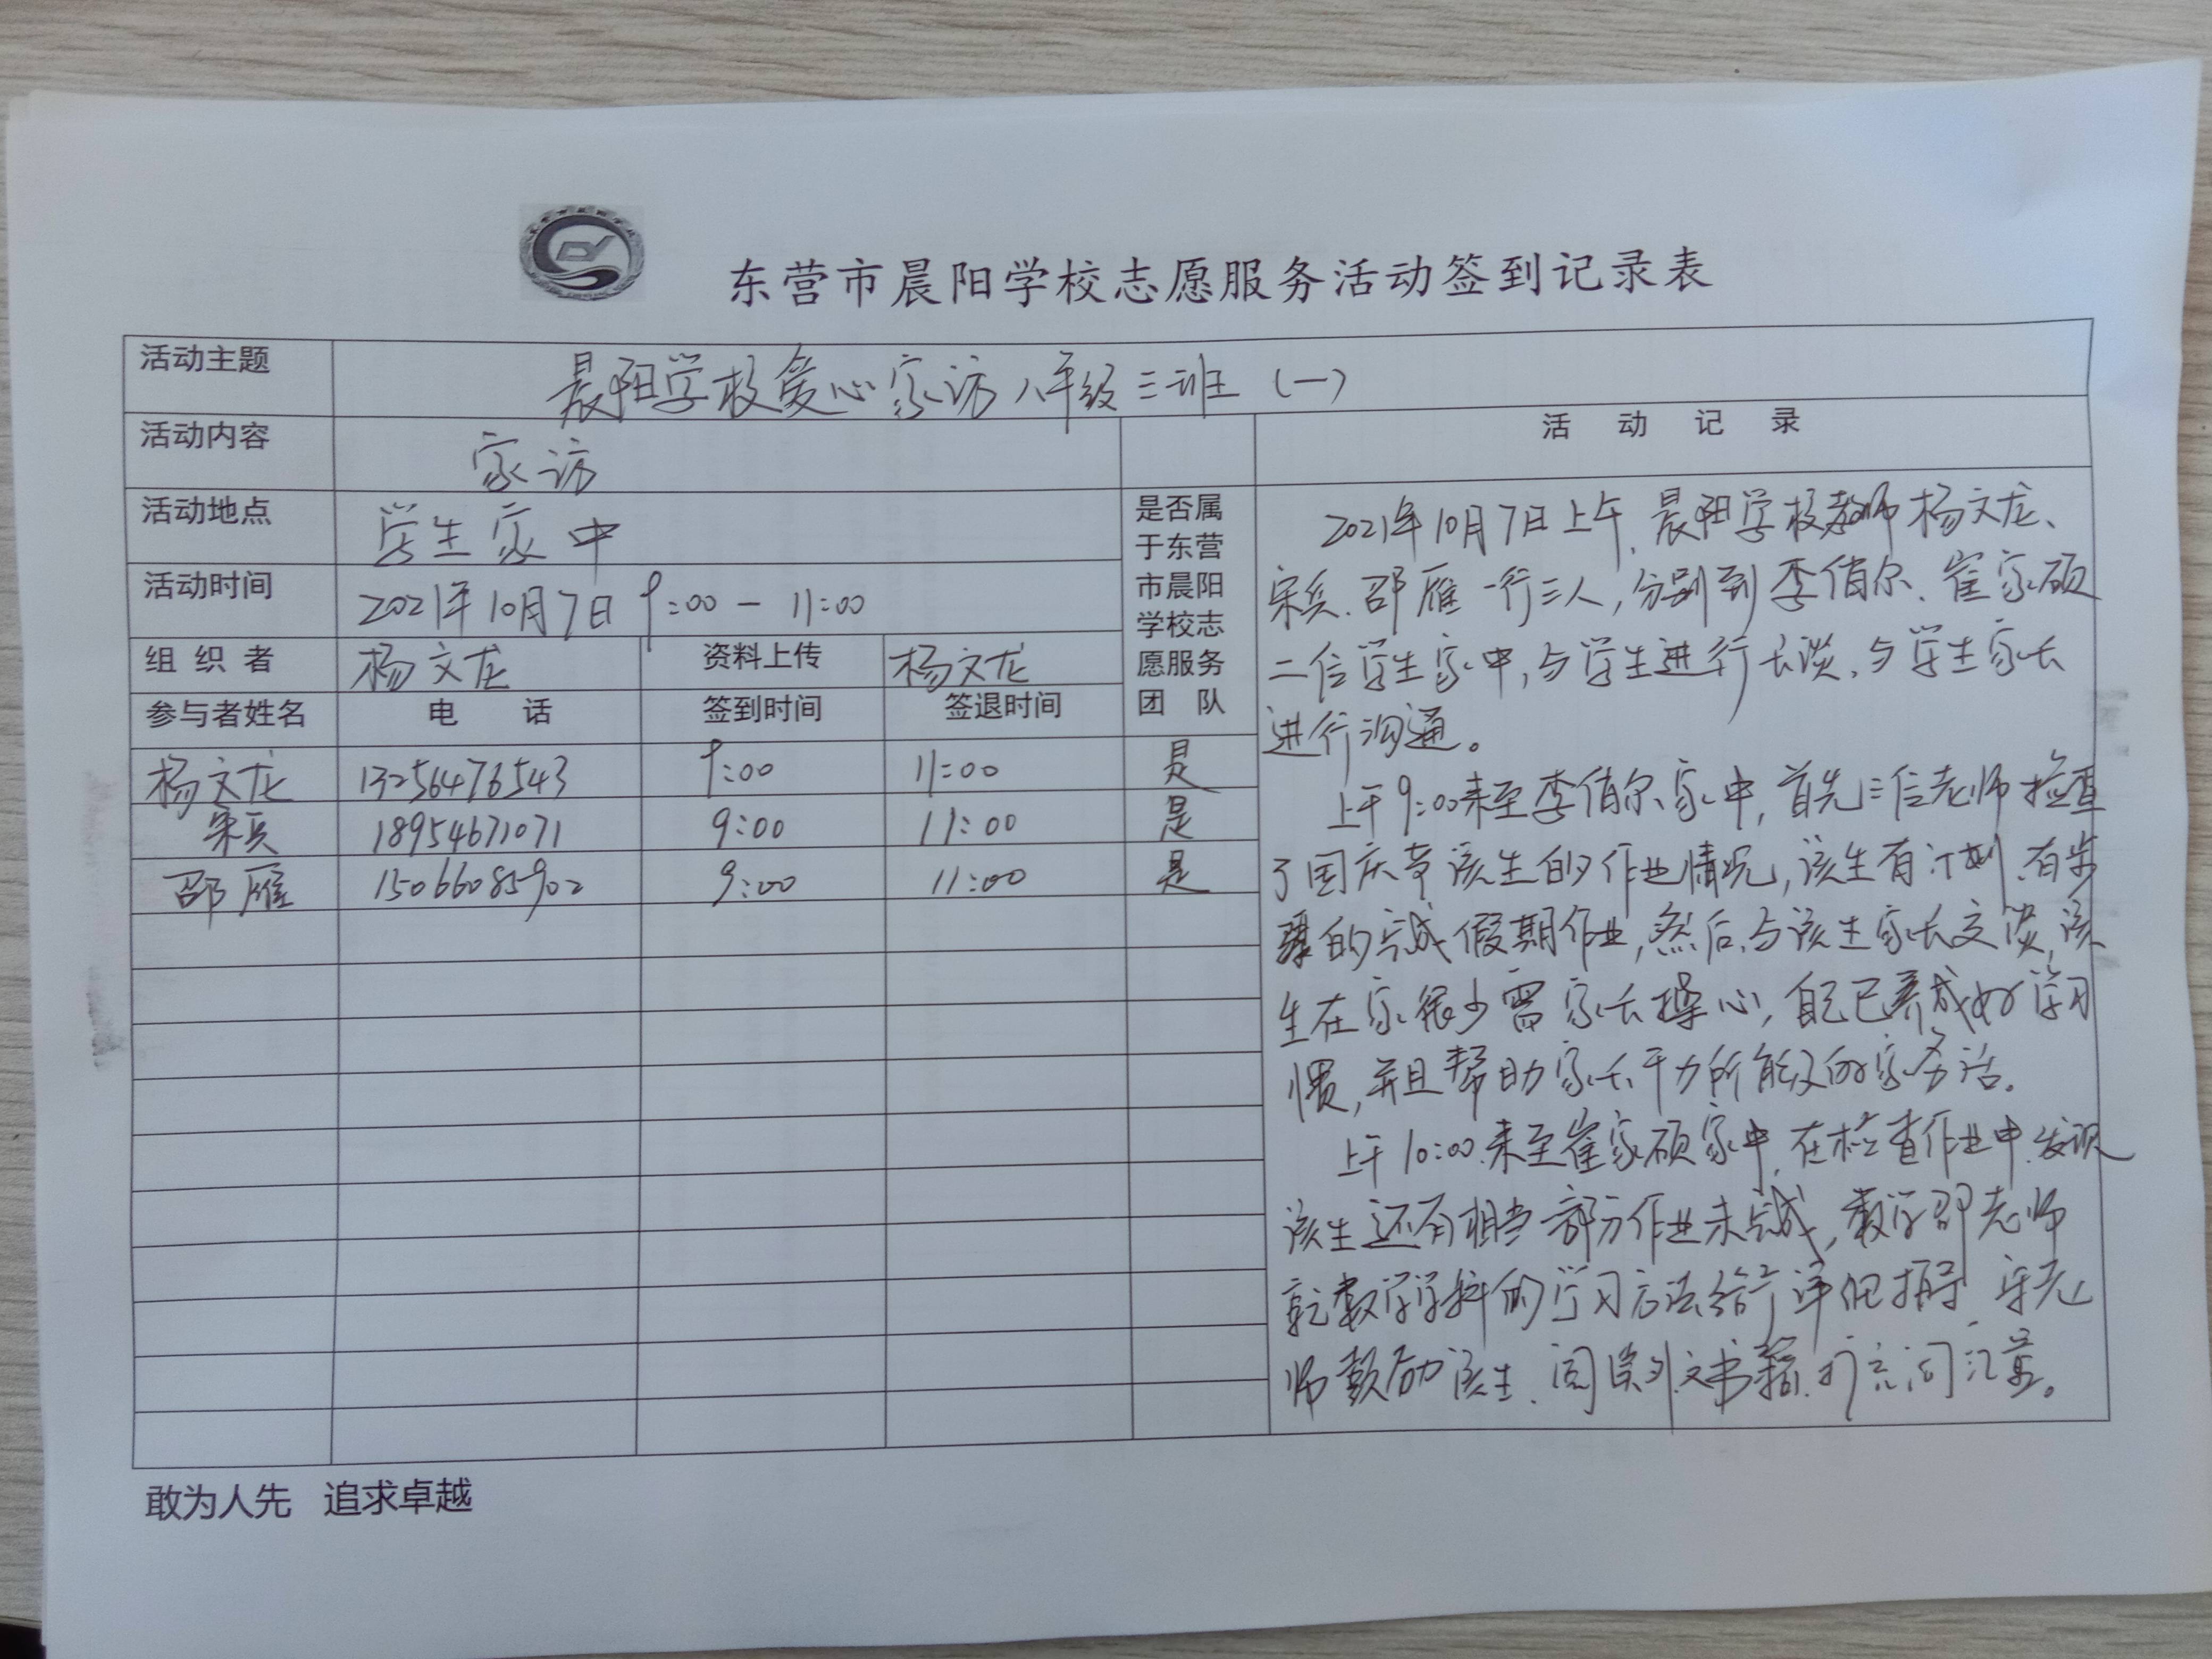 东营市晨阳学校志愿服务活动签到记录表
活动主题 晨阳学校爱心家访八年级三班（一）
活动内容 家访
活动记录
活动地点 学生家中
活动时间 2021年10月7日 9:00-11:00
组织者 杨文龙 资料上传 杨文龙
是否属
于东营
市晨阳
学校志
愿服务
团队
参与者姓名 电话 签到时间 签退时间
杨文龙 13256476543 9:00 11:00 是
宋兵 18954671071 9:00 11:00 是
邵雁 15066085902 9:00 11:00 是
2021年10月7日上午，晨阳学校教师杨文龙、
宋兵、邵雁一行三人，分别到李俏尔、崔家硕
二位学生家中，与学生进行长谈，与学生家长
进行沟通。
上午9:00来至李俏尔家中，首先三位老师检查
了国庆节该生的作业情况，该生有计划、有步
骤的完成假期作业，然后，与该生家长交谈，该
生在家很少需家长操心，自己已养成好学习
惯，并且帮助家长干力所能及的家务活。
上午10:00来至崔家硕家中，在检查作业中，发现
该生还有相当一部分作业未完成，数学邵老师
就数学学科的学习方法给予详细指导，宋老
师鼓励该生，阅课外文书籍，扩充词汇量。
敢为人先 追求卓越